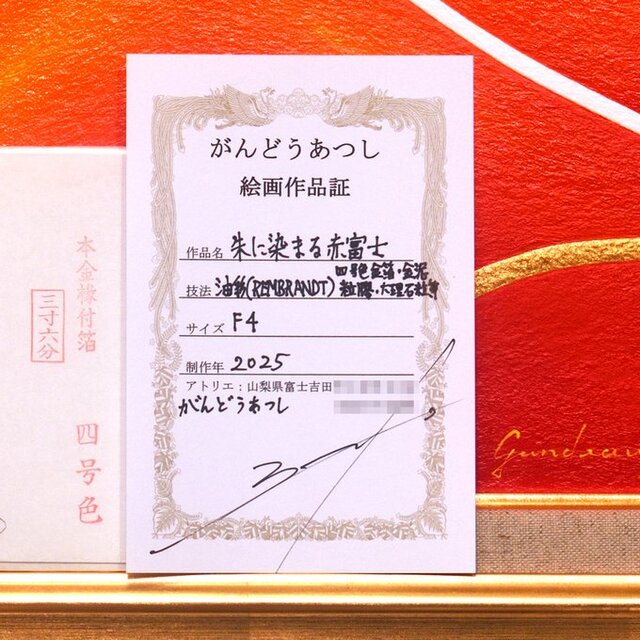 がんどうあつし
絵画作品証
作品名 朱に染まる赤富士
技法 油彩(REMBRANDT) 四号色金箔・金泥
粒膠・大理石粒等
サイズ F4
制作年 2025
アトリエ：山梨県富士吉田
がんどうあつし
本金縁付箔
三寸六分
四号色